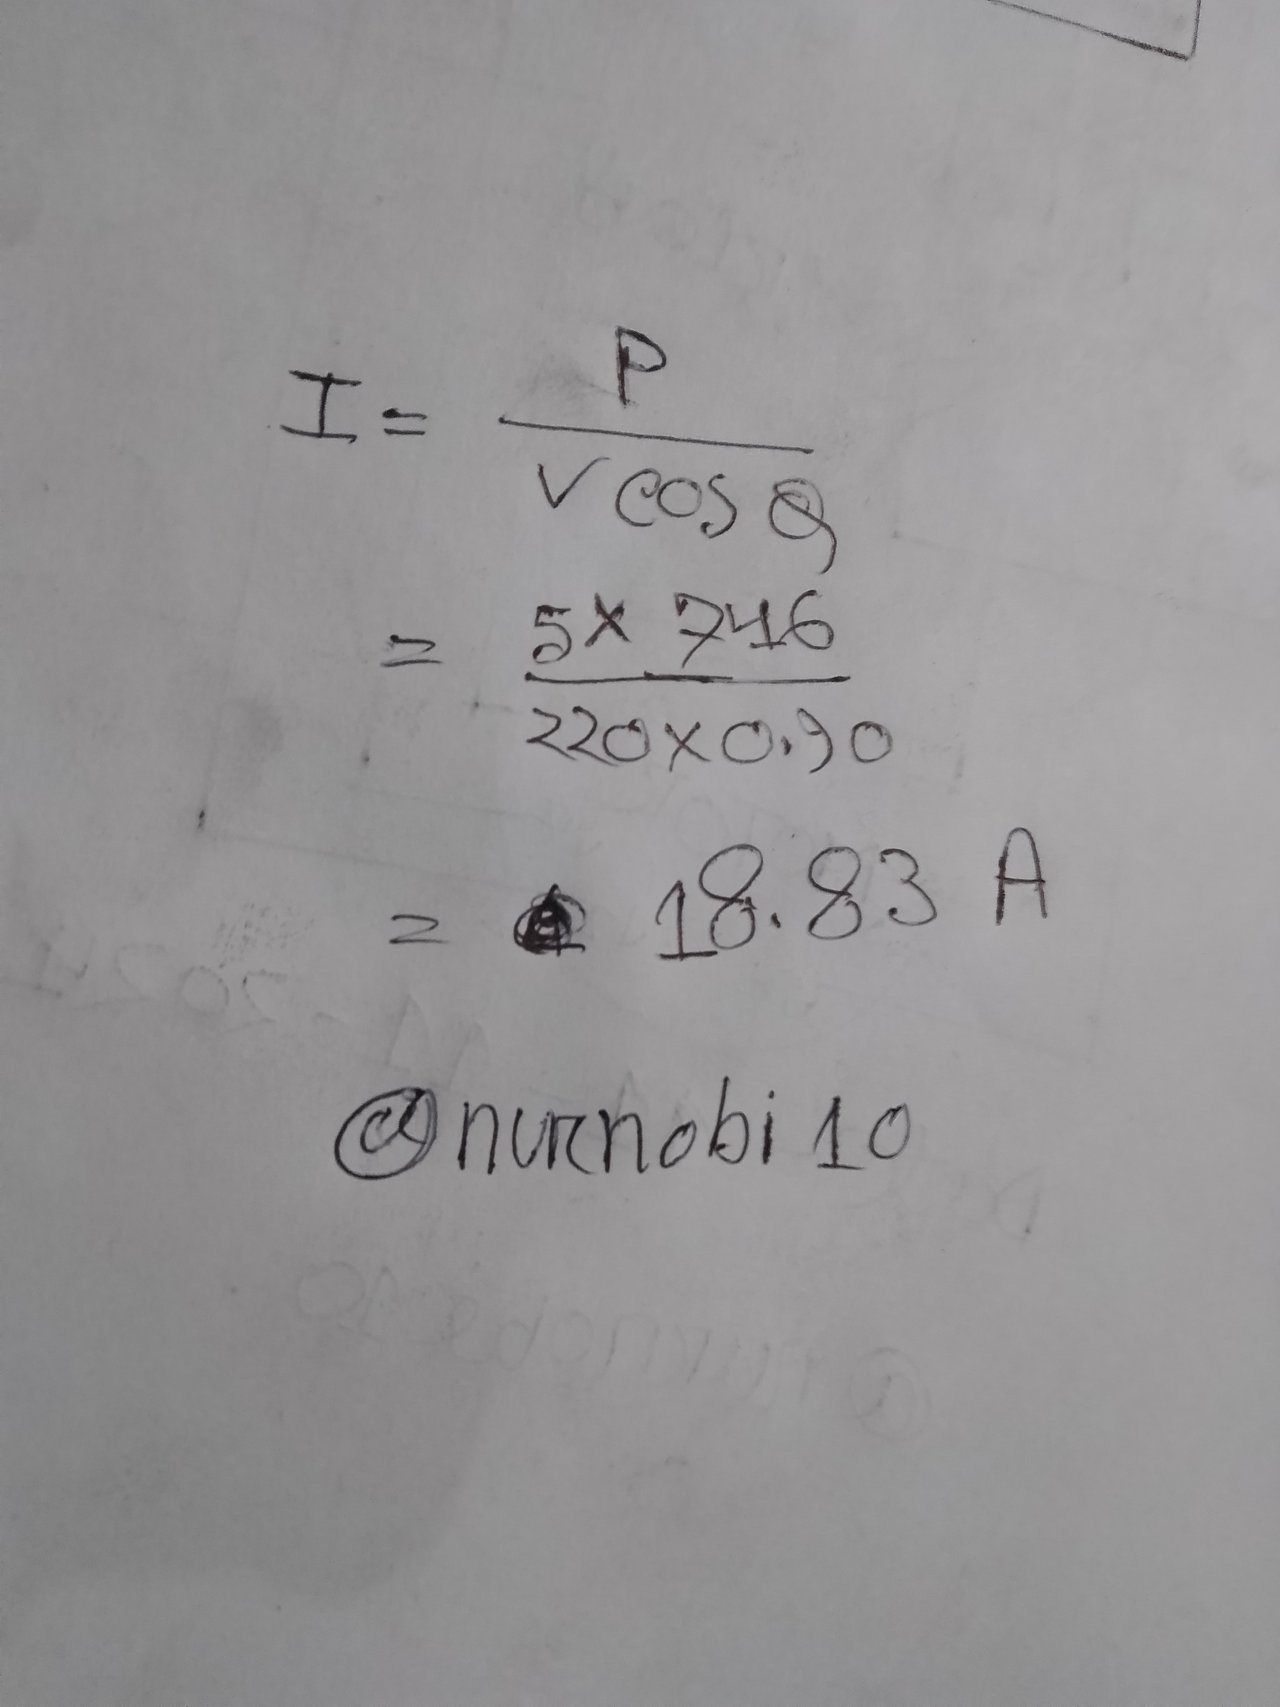 I = P
V cos θ
= 5 x 746
220 x 0.90
= 18.83 A
@nurnobi 10